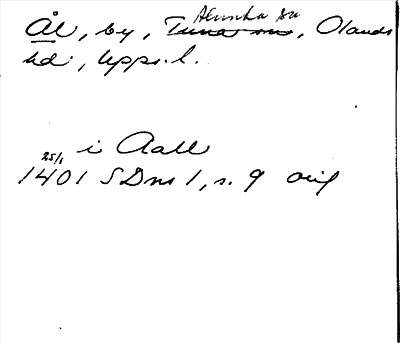 Alunda sn
Ål, by, Tuna sn, Olands
hd, Upps. l.
i Aall
25/1
1401 SDns 1, s. 9 orig